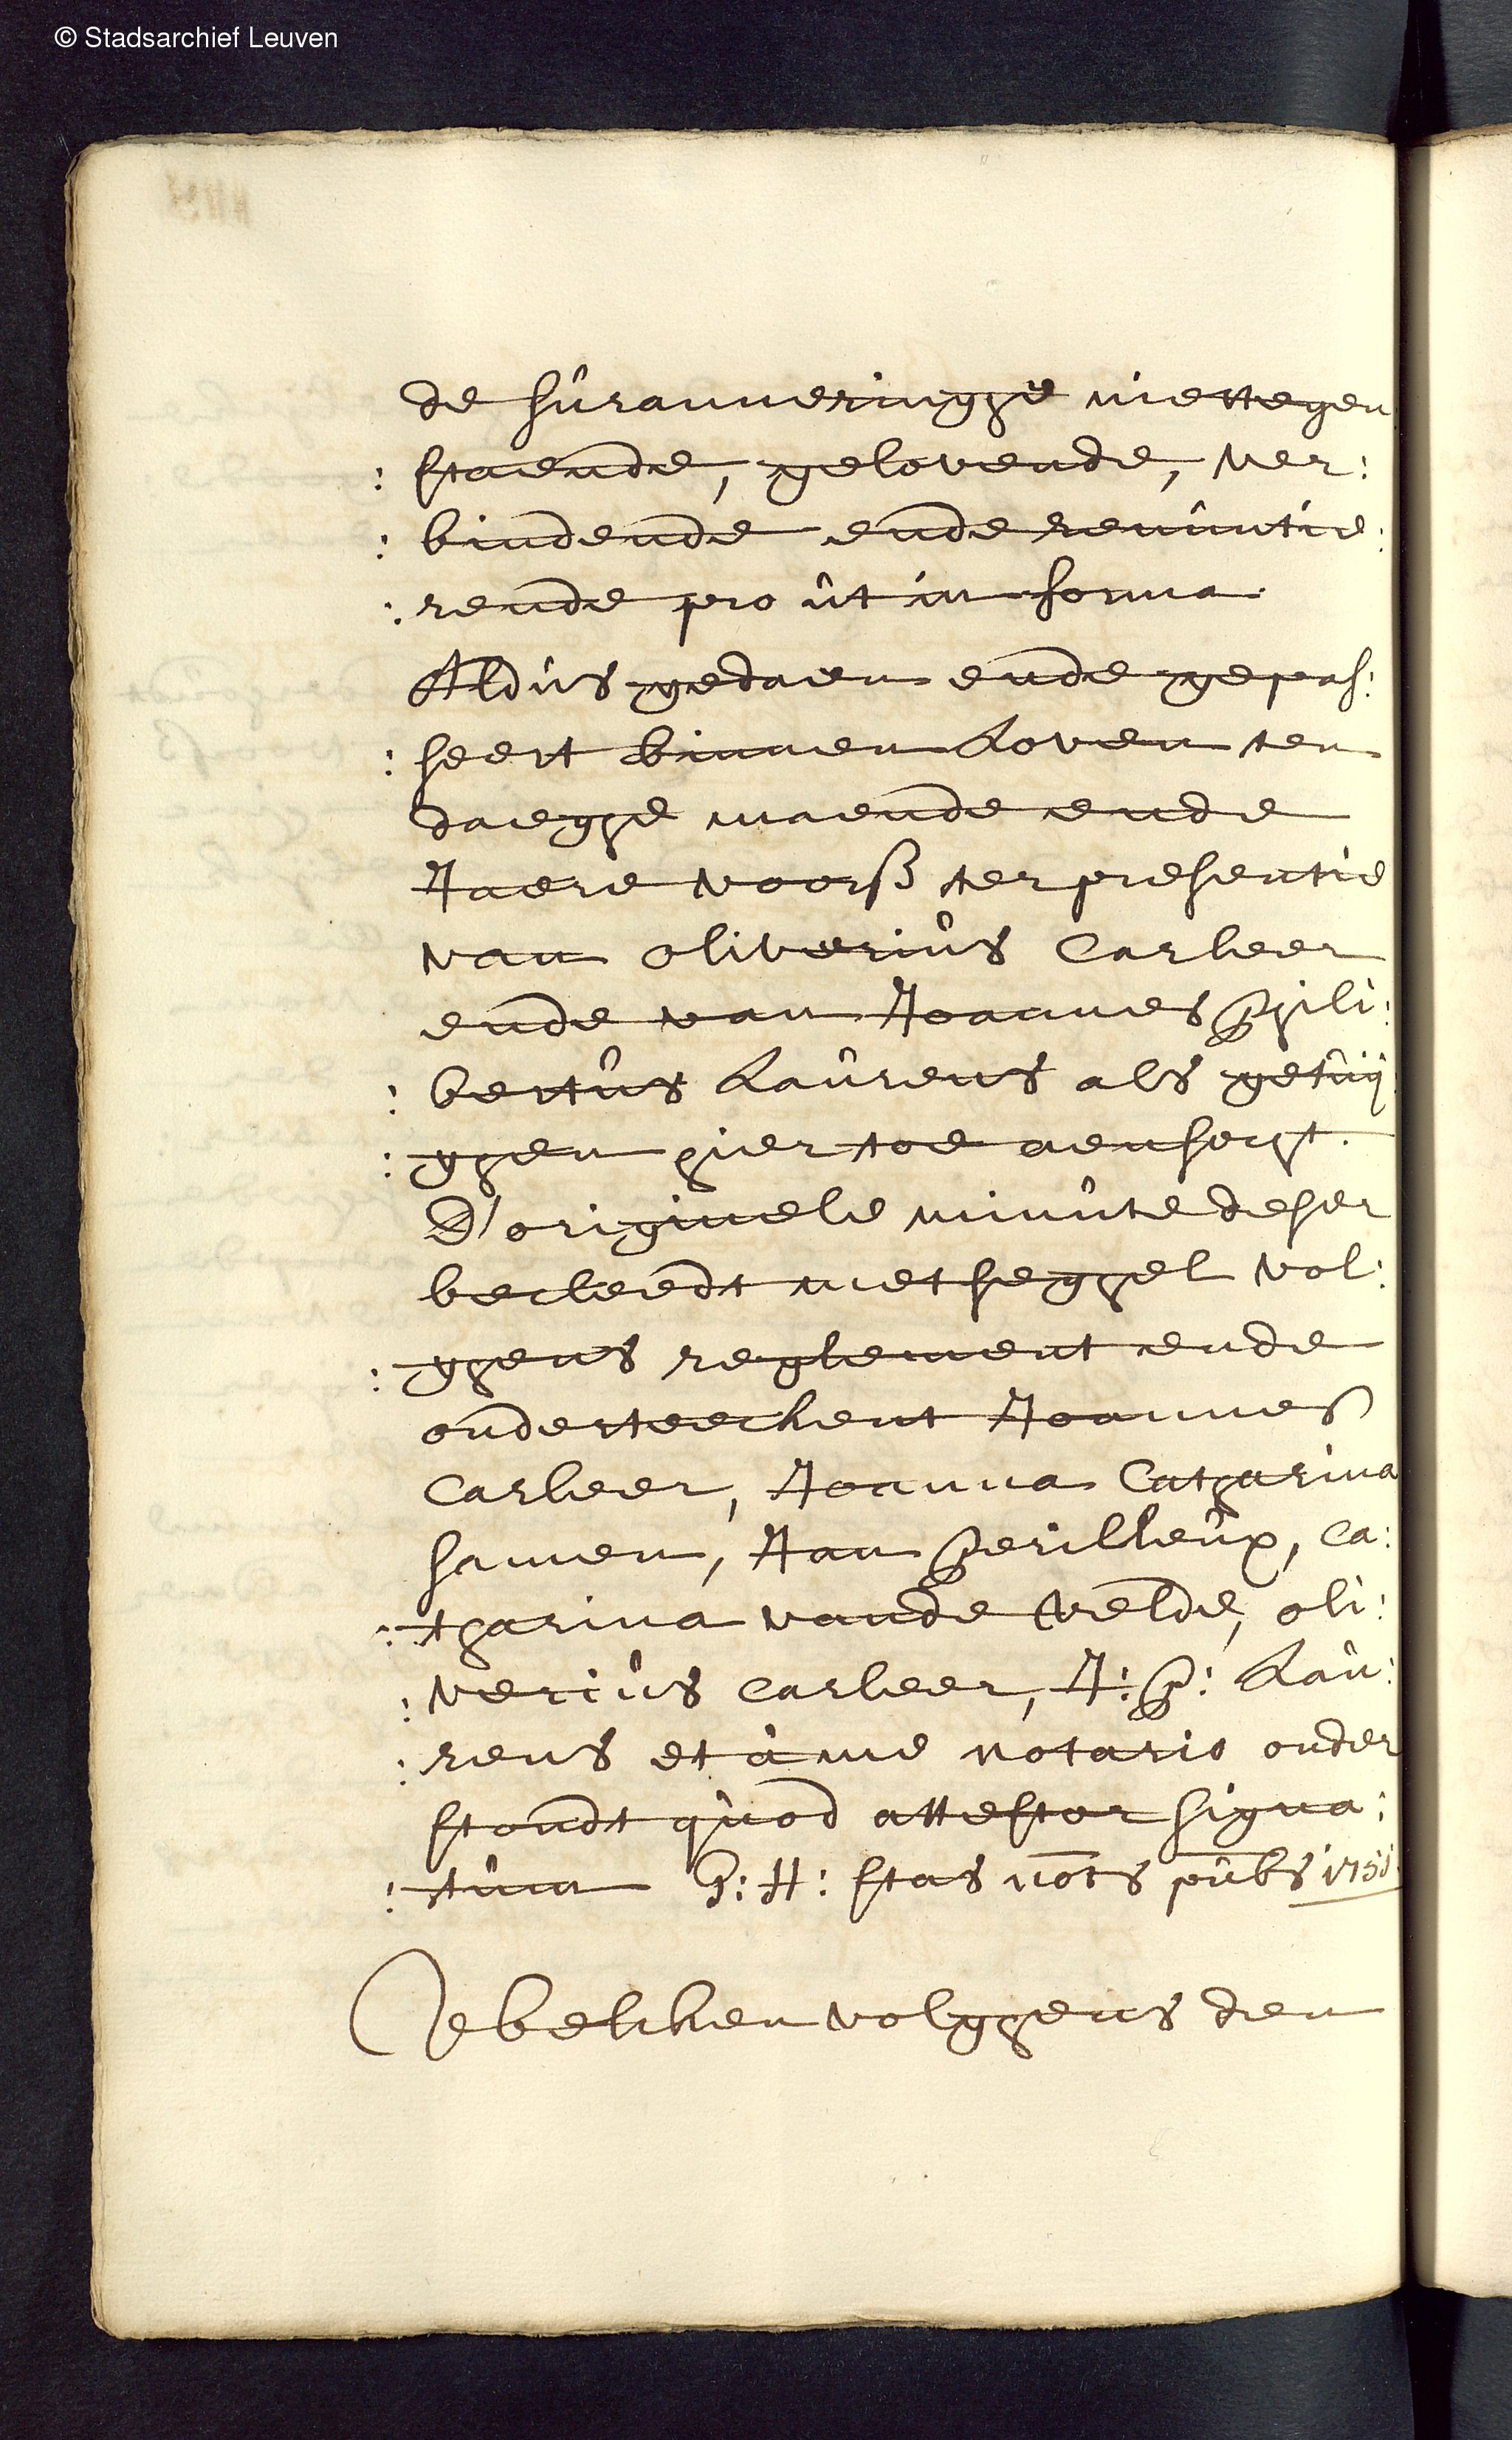 © Stadsarchief Leuven
de suranneringhe niettegen
: staende, gelovende, ver:
: bindende ende renuntie:
: rende pro ut in forma
Aldus gedaen ende gepas:
: seert binnen Loven ten
daeghe maende ende
Jaere voorss ter presentie
van oliverius Carleer
ende van Joannes Phili:
: bertus Laurens als getuij
: ghen hier toe aensocht.
D'originele minute deser
becleedt met seghel vol:
: ghens reglement ende
onderteeckent Joannes
Carleer, Joanna Catharina
samen, Jan Perilleux, Ca:
: tharina vande Velde, oli:
: verius Carleer, J: P: Lau:
: rens et a me notario onder
stondt quod attestor signa:
: tum P: H: stas nots pubs 1751
bekken volghens den